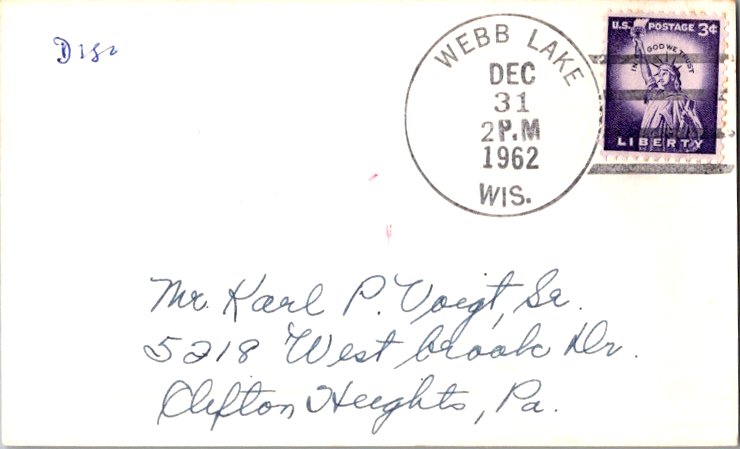 Disc
WEBB LAKE
DEC
31
2 P.M
1962
WIS.
U.S. POSTAGE 3¢
IN GOD WE TRUST
LIBERTY
Mr. Karl P. Voigt, Sr.
5218 Westbrook Dr.
Clifton Heights, Pa.